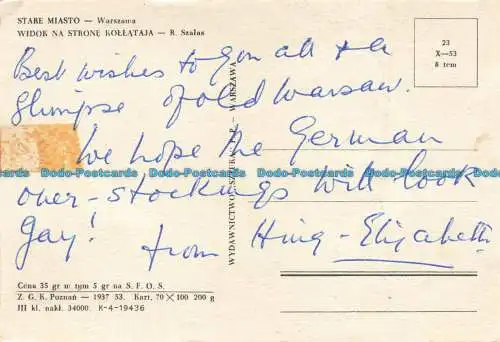 STARE MIASTO — Warszawa
WIDOK NA STRONĘ KOŁŁĄTAJA — R. Szałas
23
X—53
8 tem
Best wishes to you all & a
glimpse of old Warsaw.
We hope the German
over-stockings will look
gay! from Hing - Elizabeth
WYDAWNICTWO „SZTUKA" P. P. — WARSZAWA
Cena 35 gr w tym 5 gr na S. F. O. S.
Z. G. K. Poznań — 1937 53. Kart. 70 × 100 200 g
III kl. nakł. 34000. K-4-19436
Dodo-Postcards Dodo-Postcards Dodo-Postcards Dodo-Postcards
Dodo-Postcards Dodo-Postcards Dodo-Postcards Dodo-Postcards
Dodo-Postcards Dodo-Postcards Dodo-Postcards Dodo-Postcards